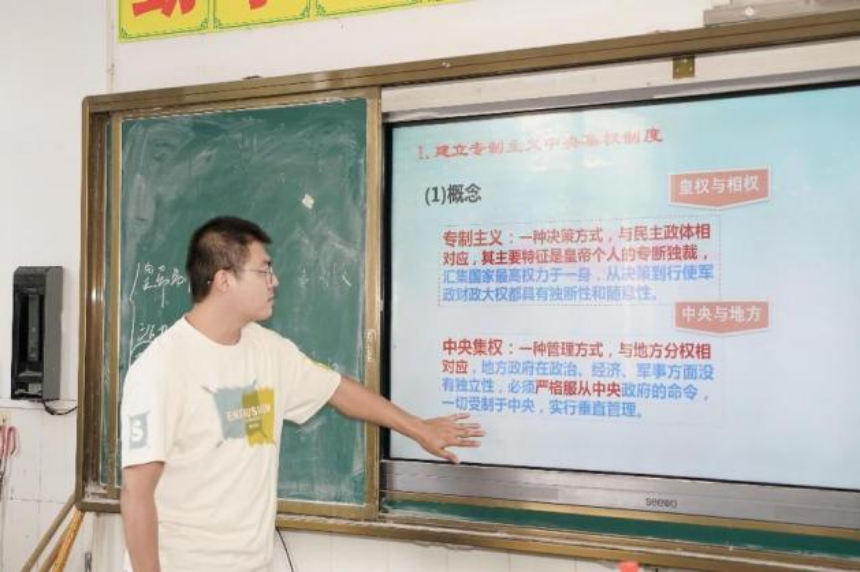 1. 建立专制主义中央集权制度
(1)概念
皇权与相权
专制主义：一种决策方式，与民主政体相
对应，其主要特征是皇帝个人的专断独裁，
汇集国家最高权力于一身，从决策到行使军
政财政大权都具有独断性和随意性。
中央与地方
中央集权：一种管理方式，与地方分权相
对应，地方政府在政治、经济、军事方面没
有独立性，必须严格服从中央政府的命令，
一切受制于中央，实行垂直管理。
seewo
S